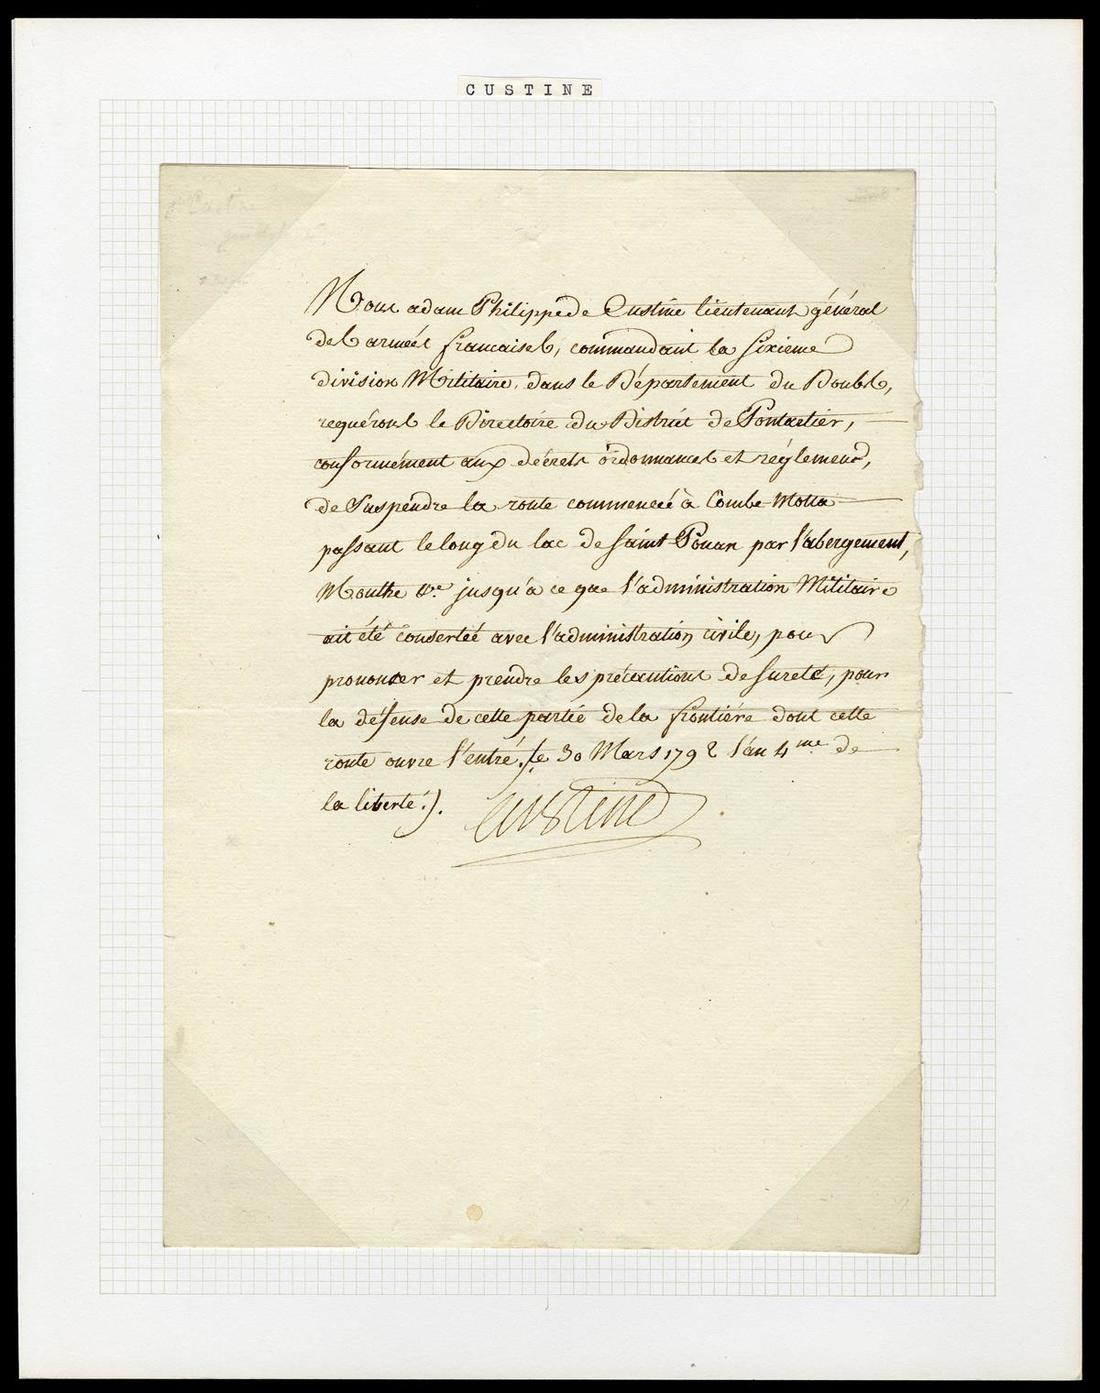 CUSTINE
Nous adam Philippe de Custine lieutenant général
des armées francaises, commandant la sixieme
division Militaire, dans le Département du Doubs,
requérons le Directoire du District de Pontarlier,
conformément aux décrets ordonnances et réglements,
de Suspendre la route commencée à Combe Motta
passant le long du lac de saint Pouan par l'abergement,
Mouthe &c. jusqu'à ce que l'administration Militaire
ait été consertée avec l'administration civile, pour
prononcer et prendre les précautions de sureté, pour
la défense de cette partie de la frontiére dont cette
route ouvre l'entré. le 30 Mars 1792 l'an 4me de
la liberté.).
Custine
Custine